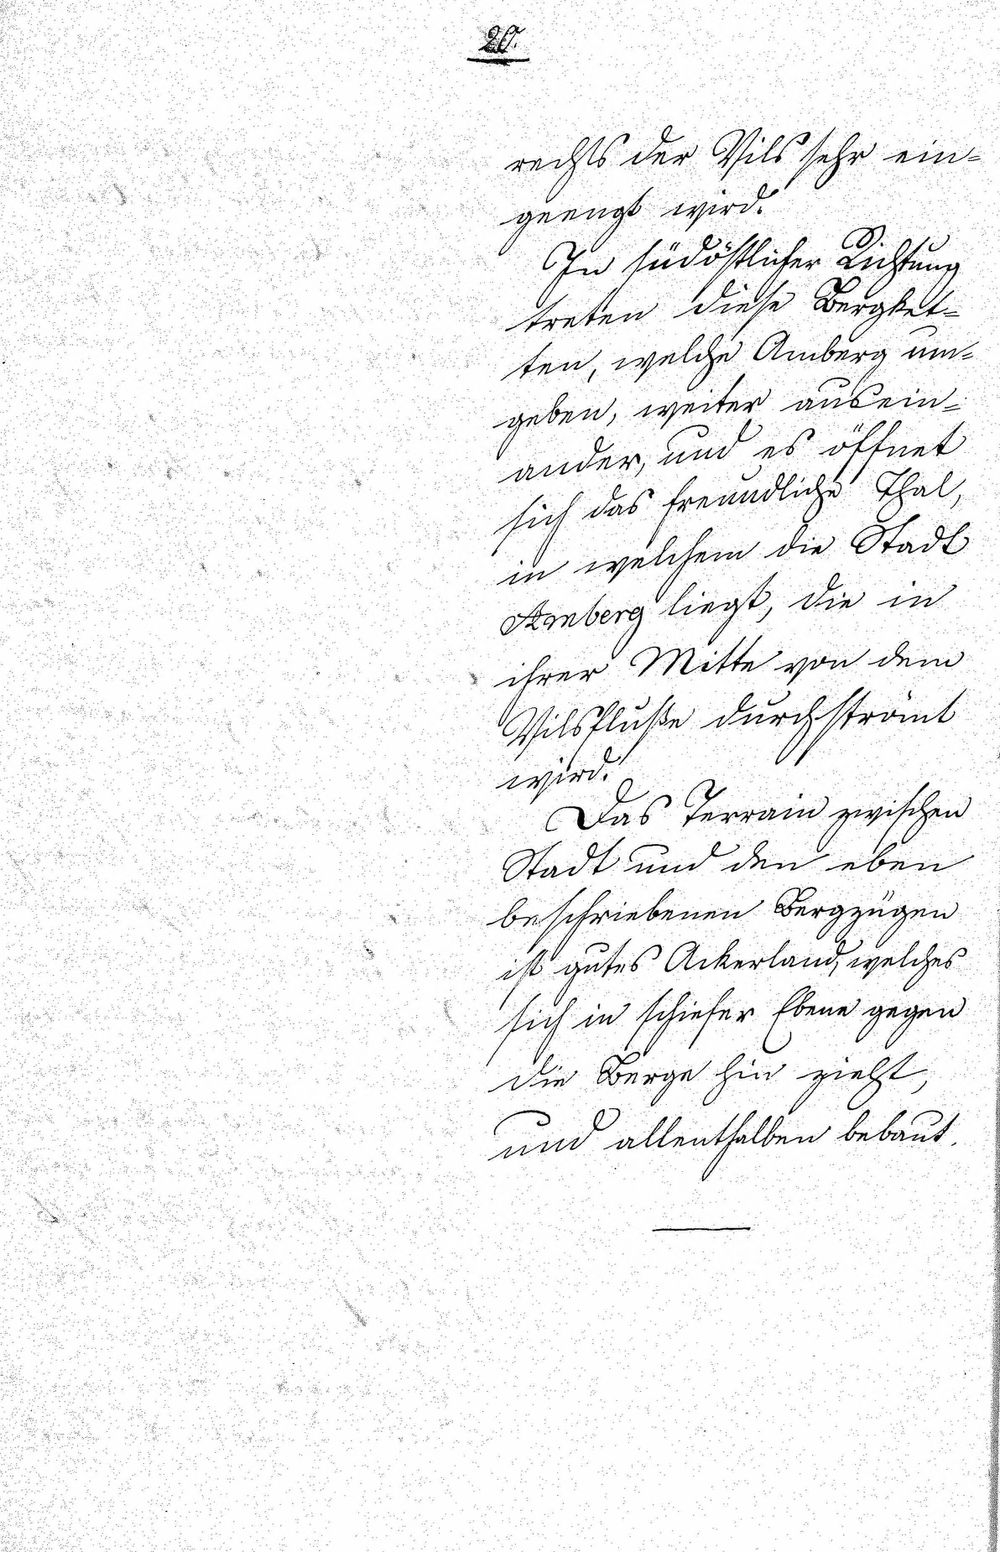 20.
rechts der Vils sehr ein-
geengt wird.
In südöstlicher Richtung
treten diese Bergket-
ten, welche Amberg um-
geben, weiter ausein-
ander, und es öffnet
sich das freundliche Thal,
in welchem die Stadt
Amberg liegt, die in
ihrer Mitte von dem
Vilsfluße durchströmt
wird.
Das Terrain zwischen
Stadt und den eben
beschriebenen Bergzügen
ist gutes Ackerland, welches
sich in schiefer Ebene gegen
die Berge hin zieht,
und allenthalben bebaut.